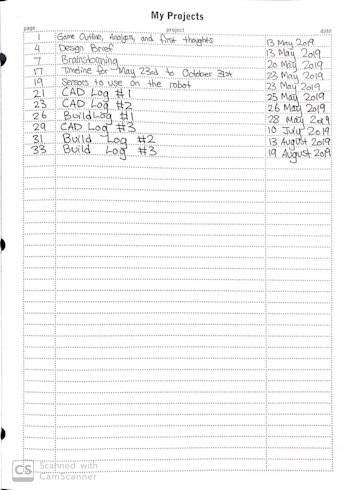 My Projects
page project date
1 Game Outline, Analysis, and first thoughts 13 May 2019
4 Design Brief 13 May 2019
7 Brainstorming 20 May 2019
17 Timeline for May 23rd to October 31st 23 May 2019
19 Sensors to use on the robot 23 May 2019
21 CAD Log #1 25 May 2019
23 CAD Log #2 26 May 2019
26 Build Log #1 28 May 2019
29 CAD Log #3 10 July 2019
31 Build Log #2 13 August 2019
33 Build Log #3 19 August 2019
CS Scanned with
CamScanner